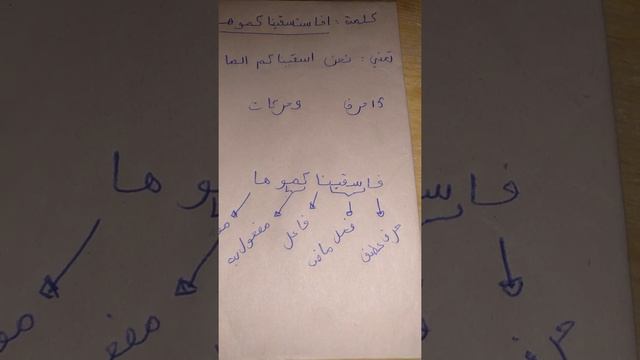 كلمة : افاستسقيناكموه
تعني : نحن اسقيناكم الما
15 حرف وحركات
فاسقيناكموها
حرف عطف فعل ماض فاعل مفعول به